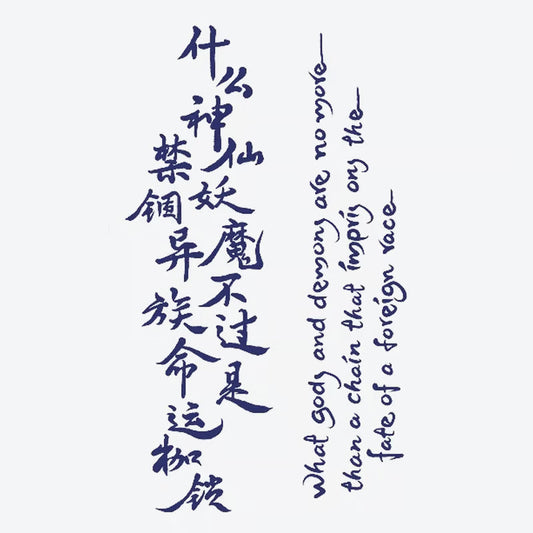 什么神仙妖魔不过是
禁锢异族命运枷锁
What gods and demons are no more
than a chain that impris ons the
fate of a foreign race